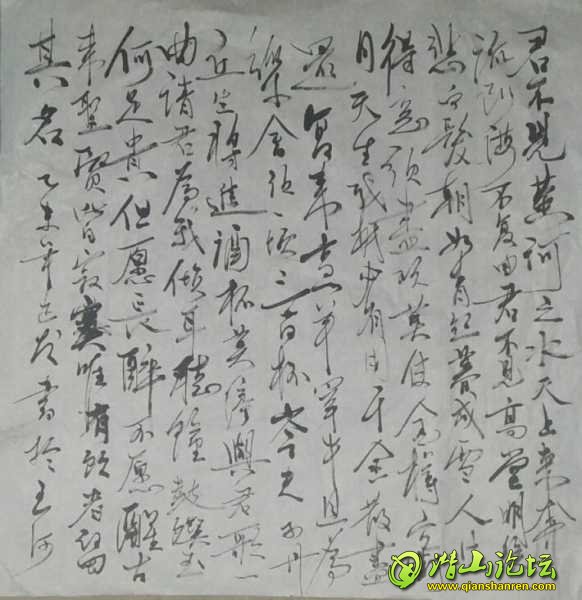 君不見黄河之水天上来奔
流到海不复回君不見高堂明镜
悲白髮朝如青丝暮成雪人生
得意须尽欢莫使金樽空
月天生我材必有用千金散尽
還复来烹羊宰牛且為
樂会须一饮三百杯岑夫子丹
丘生将進酒杯莫停與君歌一
曲请君為我倾耳聽鐘鼓饌玉
何足貴但愿長醉不愿醒古
来聖賢皆寂寞唯有飲者留
其名 乙未年 書於玉河
潜山论坛
www.qianshanren.com